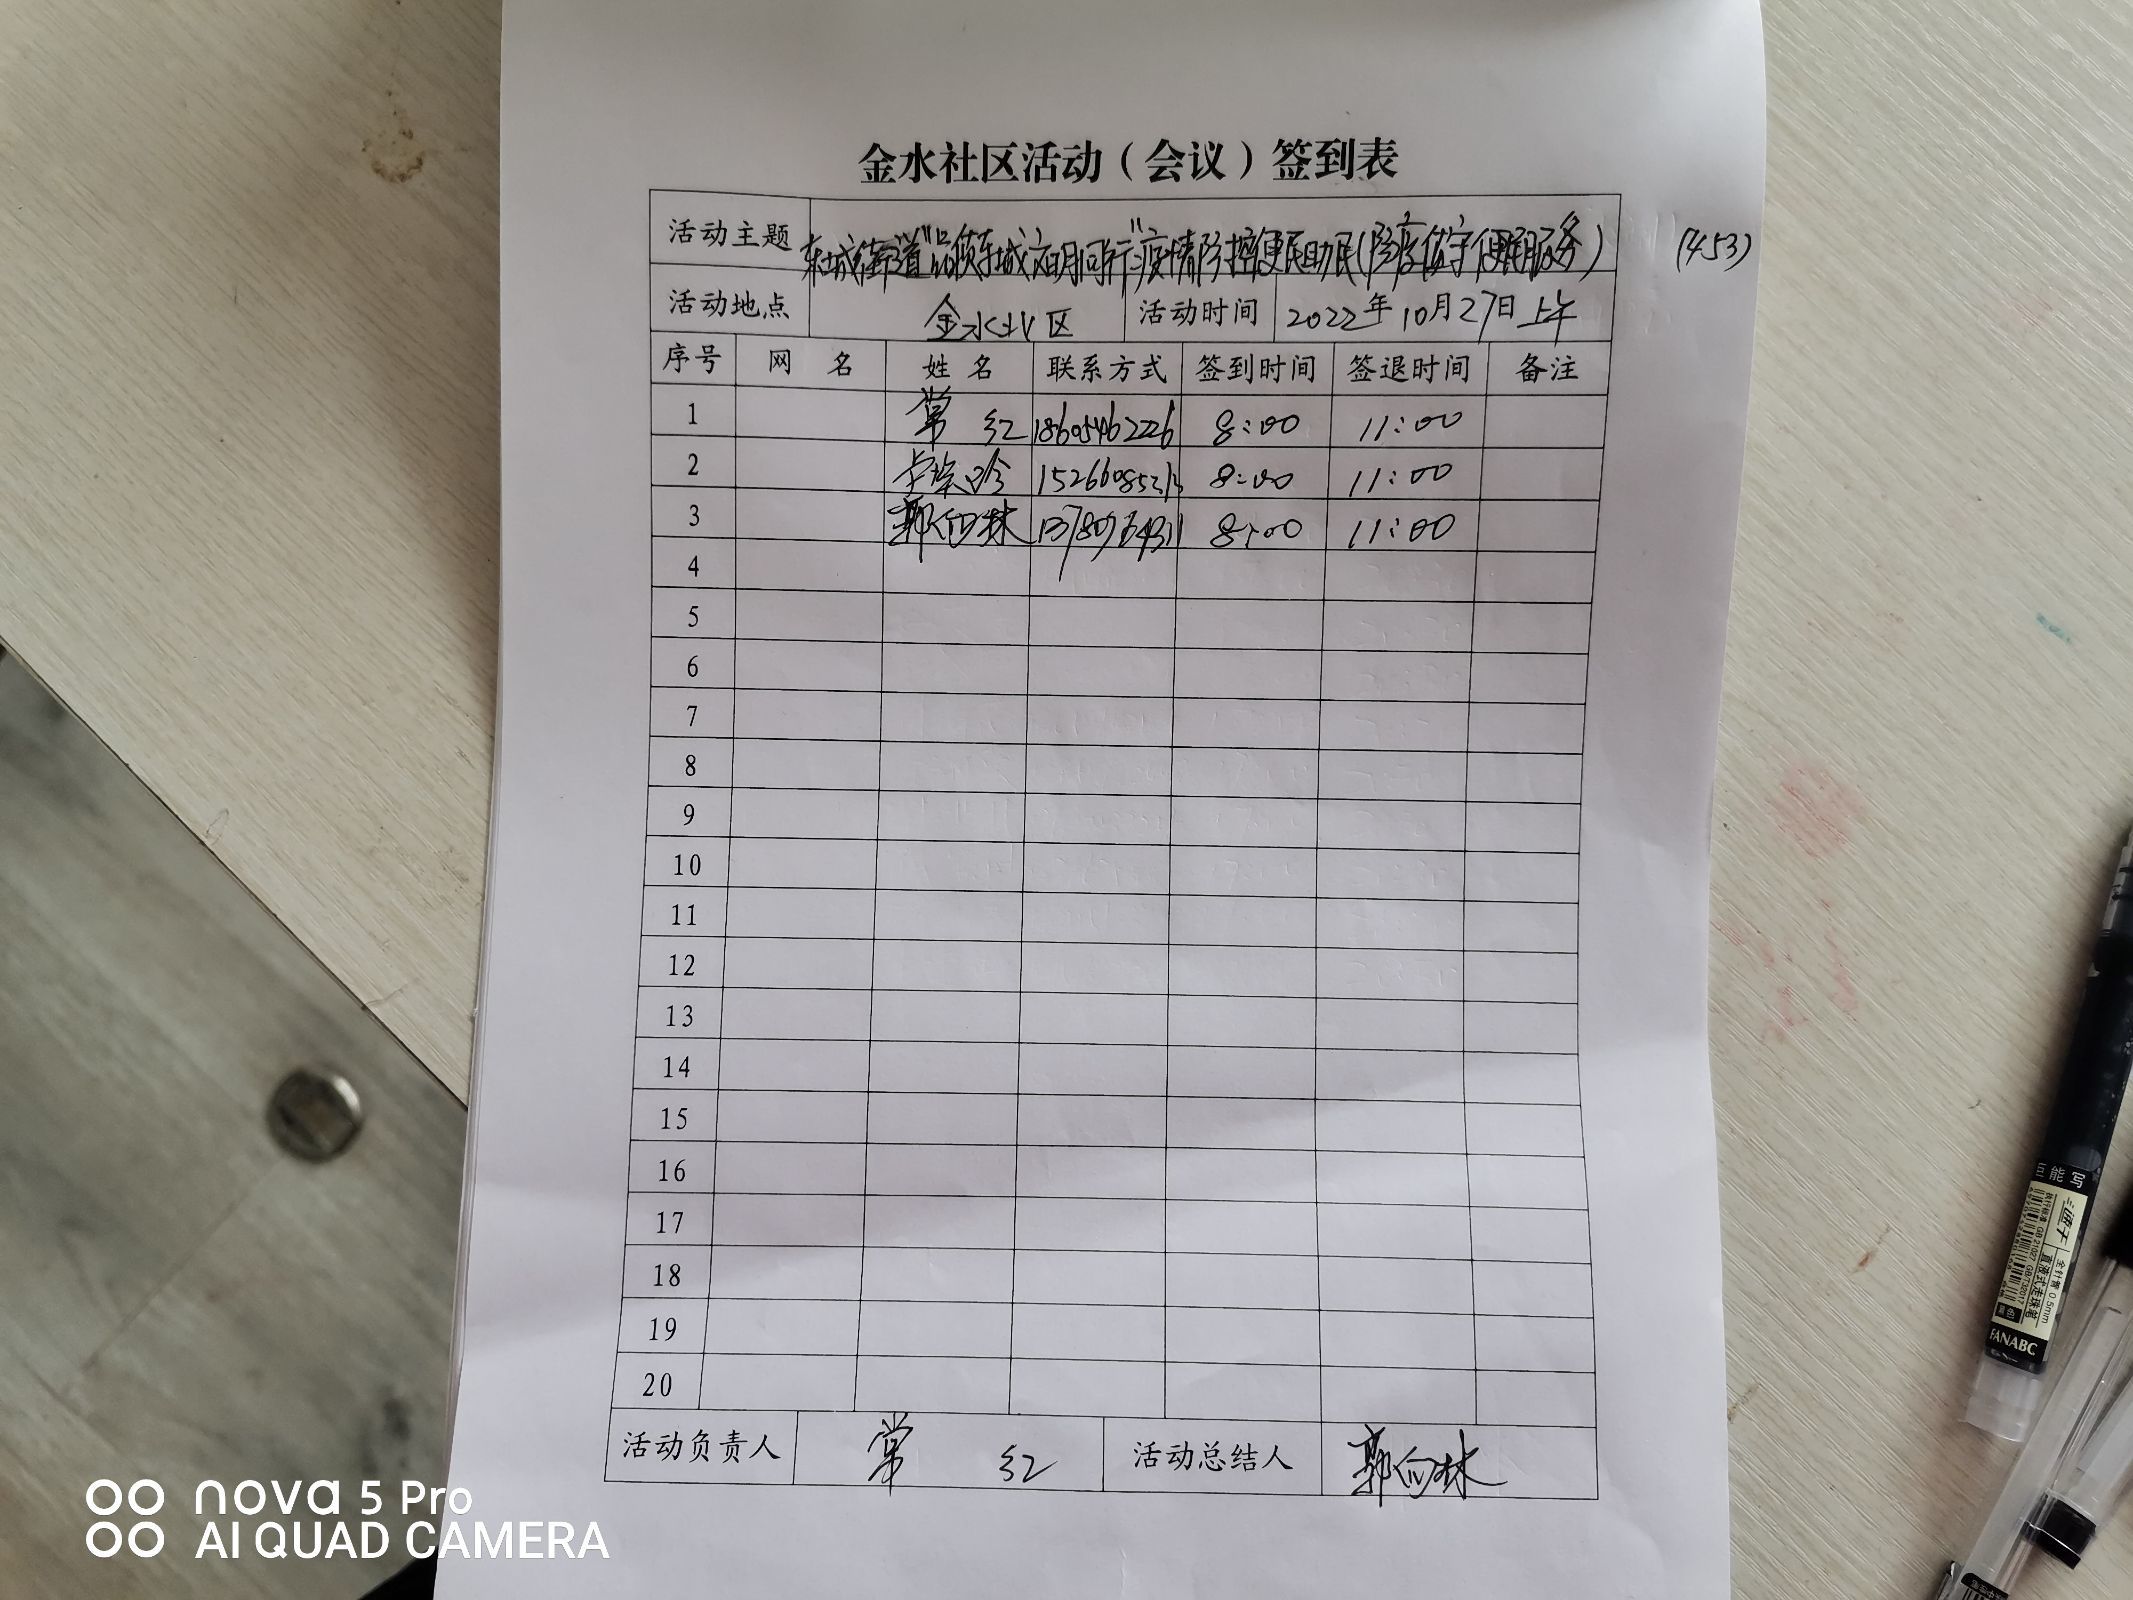 金水社区活动（会议）签到表
活动主题 东城街道"品质东城文明同行"疫情防控便民助民(防疫值守便民服务) (453)
活动地点 金水北区 活动时间 2022年10月27日上午
序号 网 名 姓 名 联系方式 签到时间 签退时间 备注
1 常 红 18605462226 8:00 11:00
2 8:00 11:00
3 郭向林 8:00 11:00
4
5
6
7
8
9
10
11
12
13
14
15
16
17
18
19
20
活动负责人 常 红 活动总结人 郭向林
能写
全针管0.5mm
直液式走珠笔
FANABC
nova 5 Pro
AI QUAD CAMERA